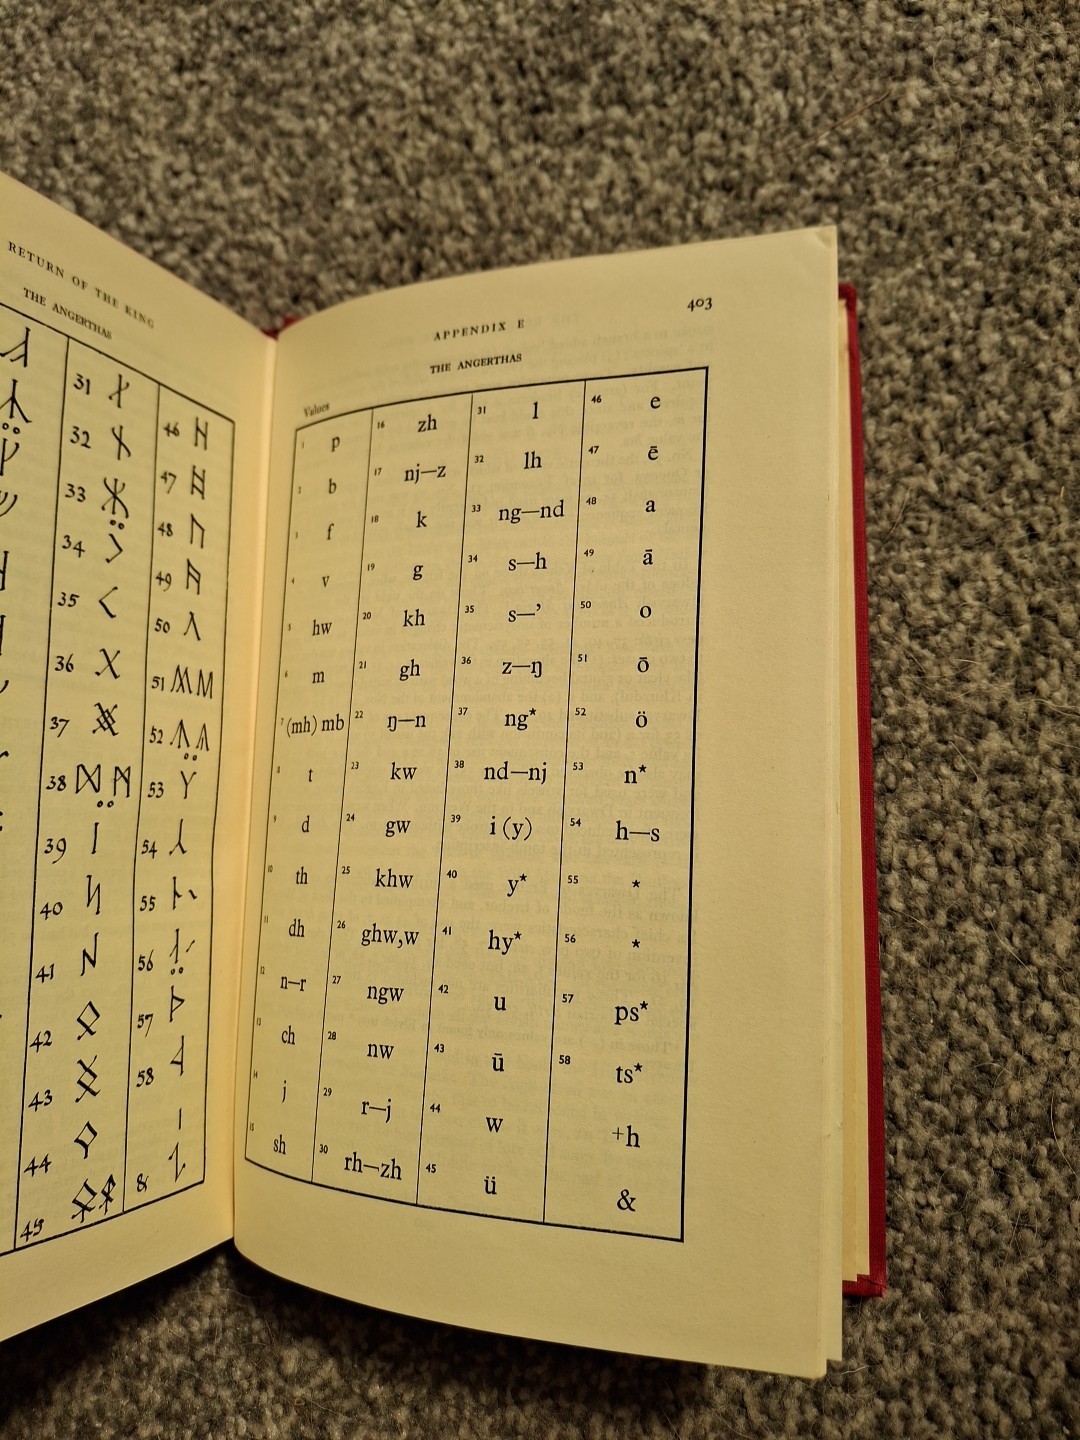 RETURN OF THE KING
THE ANGERTHAS
31
32
33
34
35
36
37
38
39
40
41
42
43
44
45
46
47
48
49
50
51
52
53
54
55
56
57
58
&
403
APPENDIX E
THE ANGERTHAS
Values
1 p
2 b
3 f
4 v
5 hw
6 m
7 (mh) mb
8 t
9 d
10 th
11 dh
12 n—r
13 ch
14 j
15 sh
16 zh
17 nj—z
18 k
19 g
20 kh
21 gh
22 ŋ—n
23 kw
24 gw
25 khw
26 ghw,w
27 ngw
28 nw
29 r—j
30 rh—zh
31 l
32 lh
33 ng—nd
34 s—h
35 s—’
36 z—ŋ
37 ng*
38 nd—nj
39 i (y)
40 y*
41 hy*
42 u
43 ū
44 w
45 ü
46 e
47 ē
48 a
49 ā
50 o
51 ō
52 ö
53 n*
54 h—s
55 *
56 *
57 ps*
58 ts*
+h
&